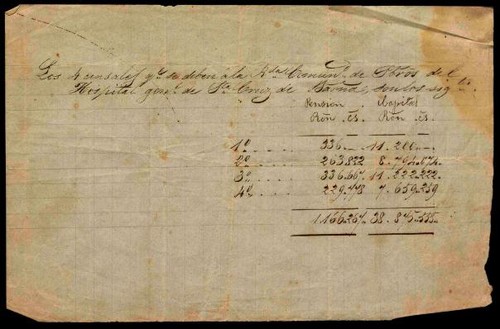 Los 4 censales q.e se deben á la R.da Comun.t de Pbros del
Hospital gene.l de Sta Cruz de Barna, son los sig.tes
Pension Capital
Rvon cs. Rvon cs.
1º . . . . 336.— 11.200.—
2º . . . . 263.832 8.794.674
3º . . . . 336.667 11.222.222
4º . . . . 229.778 7.659.259